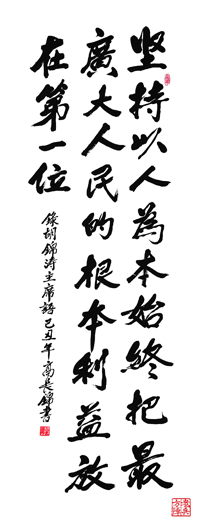 坚持以人為本始終把最
廣大人民的根本利益放
在第一位
錄胡錦涛主席語己丑年高長錦書